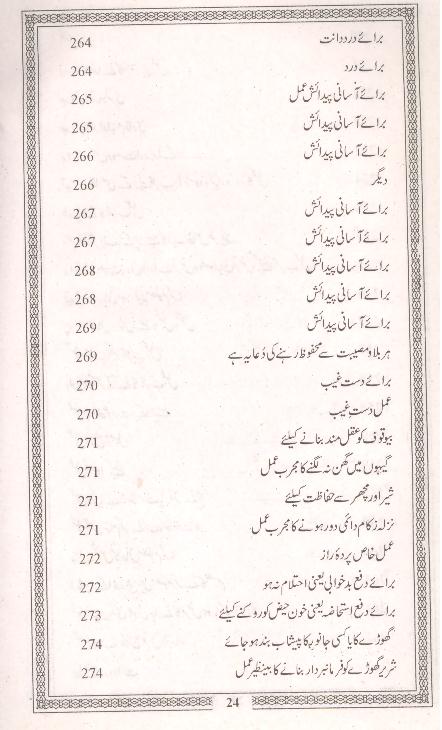 برائے درد دانت 264
برائے درد 264
برائے آسانی پیدائش عمل 265
برائے آسانی پیدائش 265
برائے آسانی پیدائش 266
دیگر 266
برائے آسانی پیدائش 267
برائے آسانی پیدائش 267
برائے آسانی پیدائش 268
برائے آسانی پیدائش 268
برائے آسانی پیدائش 269
ہر بلا و مصیبت سے محفوظ رہنے کی دُعا یہ ہے 269
برائے دست غیب 270
عمل دستِ غیب 270
بیوقوف کو عقل مند بنانے کیلئے 271
گیہوں میں گھن نہ لگنے کا مجرب عمل 271
شیر اور مچھر سے حفاظت کیلئے 271
نزلہ زکام دائمی دور ہونے کا مجرب عمل 271
عمل خاص پردۂ راز 272
برائے دفع بدخوابی یعنی احتلام نہ ہو 272
برائے دفع استحاضہ یعنی خون حیض کو روکنے کیلئے 273
گھوڑے کا یا کسی جانور کا پیشاب بند ہو جائے 274
شریر گھوڑے کو فرمانبردار بنانے کا بینظیر عمل 274
24